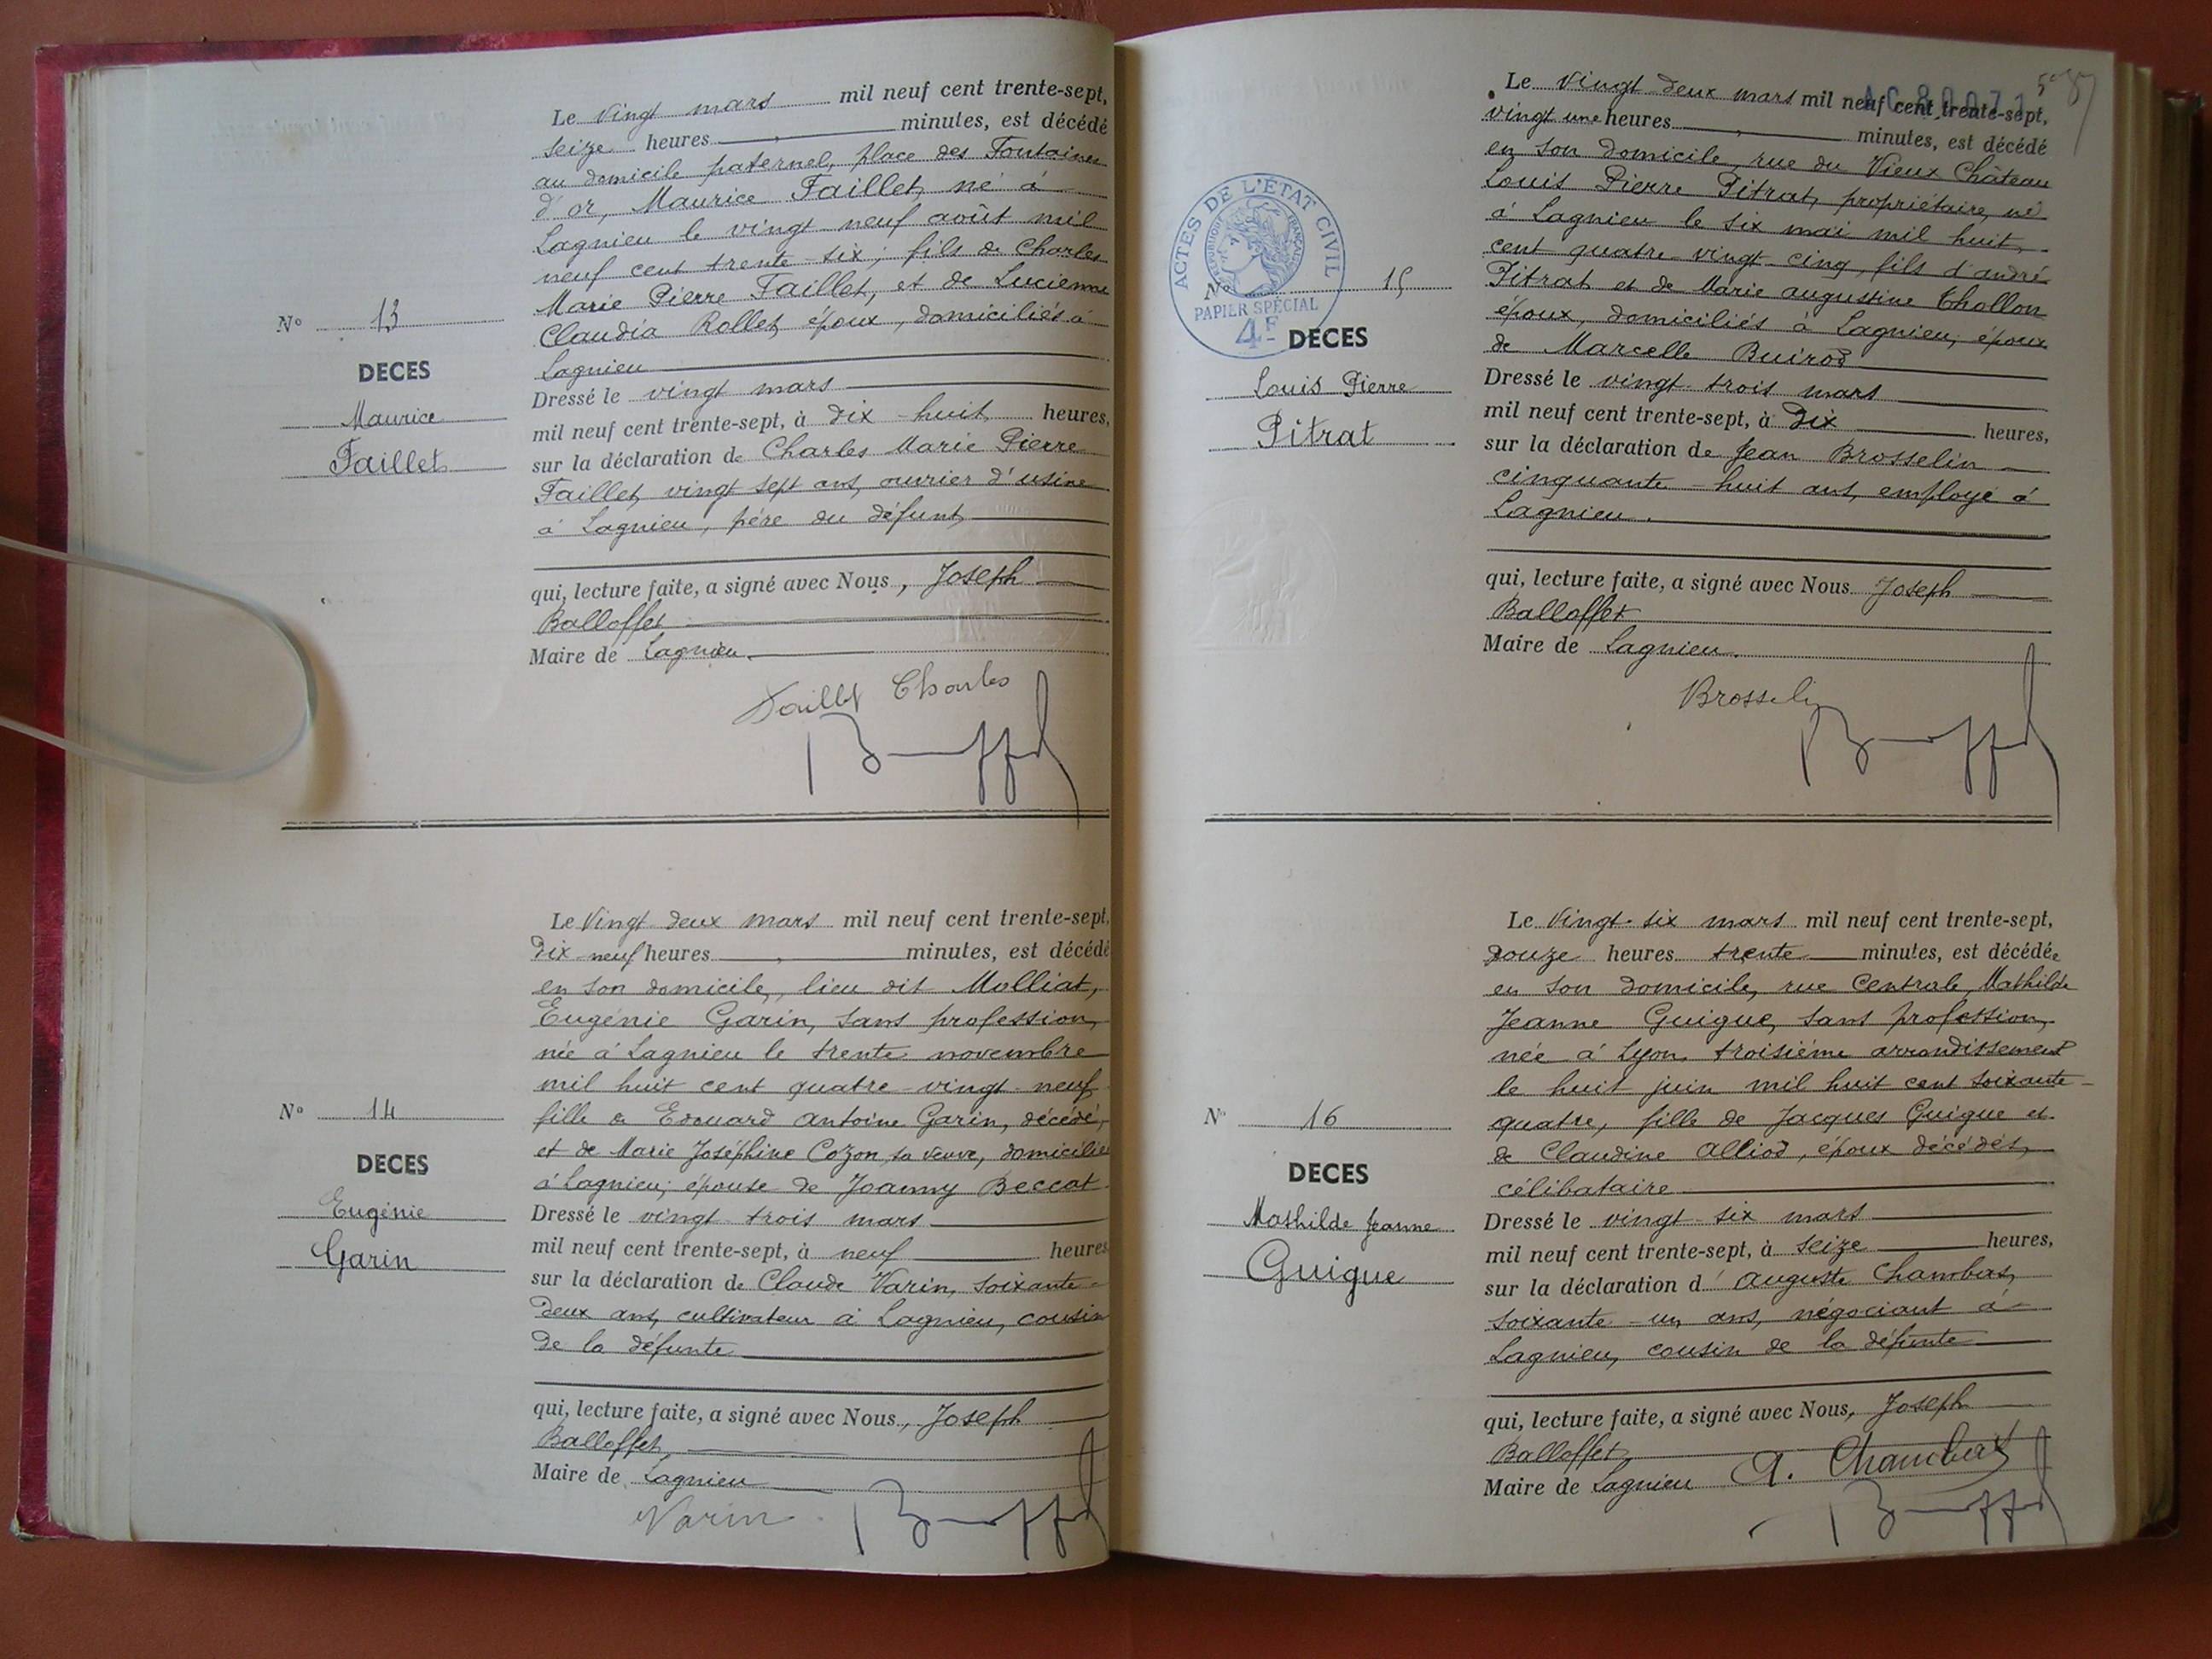 Le vingt mars mil neuf cent trente-sept,
seize heures , minutes, est décédé
au domicile paternel, place des Fontaines
d'or, Maurice Faillet, né à
Lagnieu le vingt neuf août mil
neuf cent trente-six; fils de Charles
Marie Pierre Faillet, et de Lucienne
Claudia Rollet, époux, domiciliés à
Lagnieu
Nº 13
DECES
Maurice
Faillet
Dressé le vingt mars
mil neuf cent trente-sept, à dix-huit heures,
sur la déclaration de Charles Marie Pierre
Faillet, vingt sept ans, ouvrier d'usine
à Lagnieu, père du défunt,
qui, lecture faite, a signé avec Nous, Joseph
Balloffet
Maire de Lagnieu.
Faillet Charles
Le Vingt-deux mars mil neuf cent trente-sept,
Dix-neuf heures , minutes, est décédé
en son domicile, lieu dit Molliat,
Eugénie Garin, sans profession,
née à Lagnieu le trente novembre
mil huit cent quatre-vingt-neuf
fille de Edouard Antoine Garin, décédé,
et de Marie Joséphine Cozon, sa veuve, domiciliée
à Lagnieu; épouse de Joanny Beccat
Nº 14
DECES
Eugénie
Garin
Dressé le vingt-trois mars
mil neuf cent trente-sept, à neuf heures
sur la déclaration de Claude Varin, soixante-
deux ans, cultivateur à Lagnieu, cousin
de la défunte
qui, lecture faite, a signé avec Nous, Joseph
Balloffet,
Maire de Lagnieu
Varin
Le Vingt-deux mars mil neuf cent trente-sept,
vingt une heures , minutes, est décédé
en son domicile, rue du Vieux Château
Louis Pierre Pitrat, propriétaire, né
à Lagnieu le six mai mil huit
cent quatre-vingt-cinq, fils d'André
Pitrat et de Marie Augustine Chollon
époux, domiciliés à Lagnieu; époux
de Marcelle Buirod
ACTES DE L'ÉTAT CIVIL
RÉPUBLIQUE FRANÇAISE
PAPIER SPÉCIAL
4F
Nº 15
DECES
Louis Pierre
Pitrat
Dressé le vingt-trois mars
mil neuf cent trente-sept, à Dix heures,
sur la déclaration de Jean Brosselin
cinquante-huit ans, employé à
Lagnieu.
qui, lecture faite, a signé avec Nous Joseph
Balloffet
Maire de Lagnieu.
Brosselin
Le Vingt-six mars mil neuf cent trente-sept,
Douze heures trente minutes, est décédée
en son domicile, rue Centrale, Mathilde
Jeanne Guigue, sans profession,
née à Lyon troisième arrondissement
le huit juin mil huit cent soixante-
quatre, fille de Jacques Guigue et
de Claudine Alliod, époux décédés,
célibataire
Nº 16
DECES
Mathilde Jeanne
Guigue
Dressé le vingt-six mars
mil neuf cent trente-sept, à seize heures,
sur la déclaration d'Auguste Chambas,
soixante-un ans, négociant à
Lagnieu, cousin de la défunte
qui, lecture faite, a signé avec Nous, Joseph
Balloffet,
Maire de Lagnieu